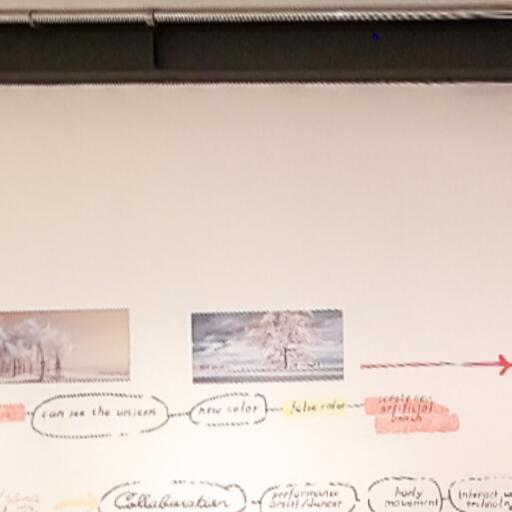 can see the unseen
new color
false color
create new
artificial
Collaboration
performance
artist/dancer
body
movement
interact w
technology